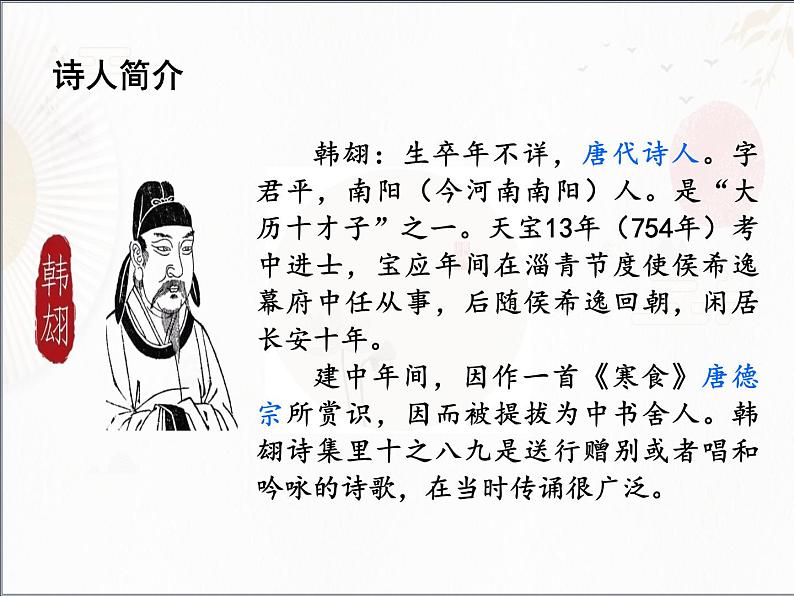 诗人简介
韩翃：生卒年不详，唐代诗人。字
君平，南阳（今河南南阳）人。是“大
历十才子”之一。天宝13年（754年）考
中进士，宝应年间在淄青节度使侯希逸
幕府中任从事，后随侯希逸回朝，闲居
长安十年。
建中年间，因作一首《寒食》唐德
宗所赏识，因而被提拔为中书舍人。韩
翃诗集里十之八九是送行赠别或者唱和
吟咏的诗歌，在当时传诵很广泛。
韩翃